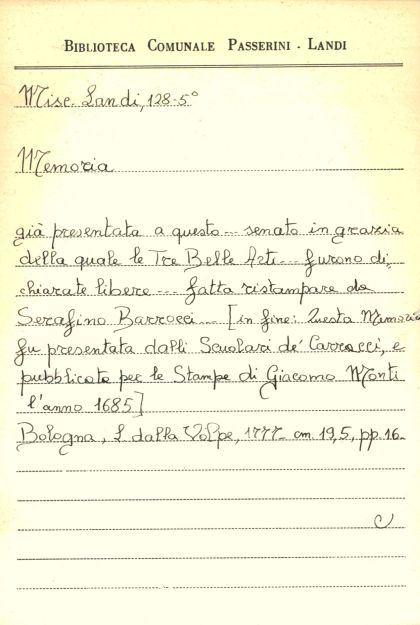 BIBLIOTECA COMUNALE PASSERINI - LANDI
Misc. Landi, 128-5°
Memoria
già presentata a questo... senato in grazia
della quale le Tre Belle Arti... furono di,
chiarate libere... fatta ristampare da
Serafino Barrocci... [in fine: Questa Memoria
fu presentata dalli Scuolari de' Carracci, e
pubblicata per le Stampe di Giacomo Monti
l'anno 1685]
Bologna, L. dalla Volpe, 1777. cm. 19,5, pp. 16.
C